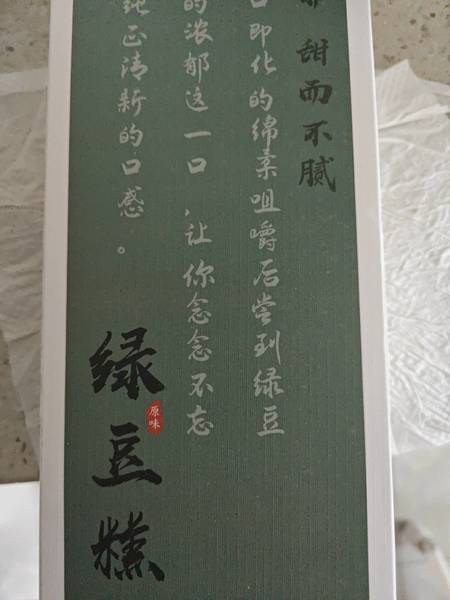 甜而不腻
口即化的绵柔咀嚼后尝到绿豆
的浓郁这一口,让你念念不忘
纯正清新的口感。
绿豆糕
原味